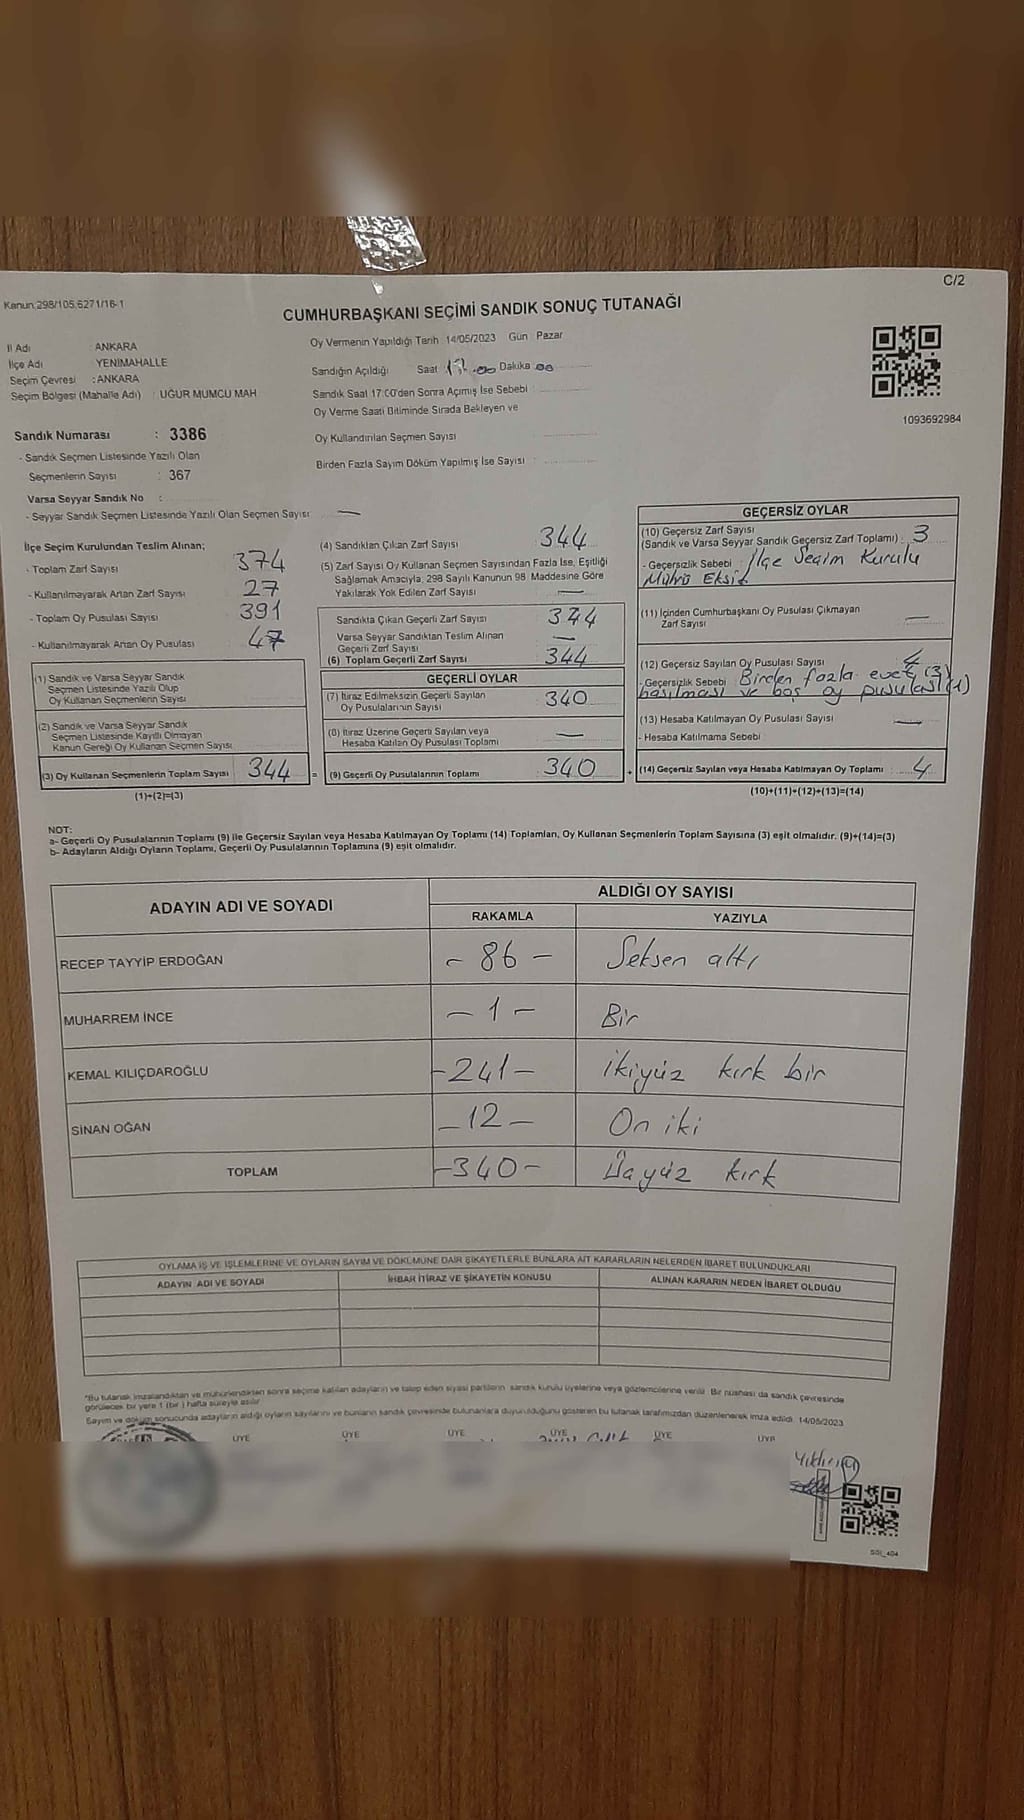 C/2
Kanun:298/105,6271/16-1
CUMHURBAŞKANI SEÇİMİ SANDIK SONUÇ TUTANAĞI
İl Adı : ANKARA
İlçe Adı : YENİMAHALLE
Seçim Çevresi : ANKARA
Seçim Bölgesi (Mahalle Adı) : UĞUR MUMCU MAH
Oy Vermenin Yapıldığı Tarih 14/05/2023 Gün Pazar
Sandığın Açıldığı Saat Dakika 00
Sandık Saat 17:00'den Sonra Açımış İse Sebebi
Oy Verme Saati Bitiminde Sırada Bekleyen ve
Oy Kullandırılan Seçmen Sayısı
Birden Fazla Sayım Döküm Yapılmış İse Sayısı :
1093692984
Sandık Numarası : 3386
- Sandık Seçmen Listesinde Yazılı Olan
Seçmenlerin Sayısı : 367
Varsa Seyyar Sandık No :
- Seyyar Sandık Seçmen Listesinde Yazılı Olan Seçmen Sayısı: —
İlçe Seçim Kurulundan Teslim Alınan;
- Toplam Zarf Sayısı 374
- Kullanılmayarak Artan Zarf Sayısı 27
- Toplam Oy Pusulası Sayısı 391
- Kullanılmayarak Artan Oy Pusulası 47
(1) Sandık ve Varsa Seyyar Sandık
Seçmen Listesinde Yazılı Olup
Oy Kullanan Seçmenlerin Sayısı
(2) Sandık ve Varsa Seyyar Sandık
Seçmen Listesinde Kayıtlı Olmayan
Kanun Gereği Oy Kullanan Seçmen Sayısı
(3) Oy Kullanan Seçmenlerin Toplam Sayısı 344
(1)+(2)=(3)
(4) Sandıktan Çıkan Zarf Sayısı 344
(5) Zarf Sayısı Oy Kullanan Seçmen Sayısından Fazla İse, Eşitliği
Sağlamak Amacıyla, 298 Sayılı Kanunun 98. Maddesine Göre
Yakılarak Yok Edilen Zarf Sayısı —
Sandıkta Çıkan Geçerli Zarf Sayısı 344
Varsa Seyyar Sandıktan Teslim Alınan
Geçerli Zarf Sayısı —
(6) Toplam Geçerli Zarf Sayısı 344
GEÇERLİ OYLAR
(7) İtiraz Edilmeksizin Geçerli Sayılan
Oy Pusulalarının Sayısı 340
(8) İtiraz Üzerine Geçerli Sayılan veya
Hesaba Katılan Oy Pusulası Toplamı —
= (9) Geçerli Oy Pusulalarının Toplamı 340
GEÇERSİZ OYLAR
(10) Geçersiz Zarf Sayısı
(Sandık ve Varsa Seyyar Sandık Geçersiz Zarf Toplamı) : 3
- Geçersizlik Sebebi : İlçe Seçim Kurulu
Mührü Eksik
(11) İçinden Cumhurbaşkanı Oy Pusulası Çıkmayan
Zarf Sayısı —
(12) Geçersiz Sayılan Oy Pusulası Sayısı 4
- Geçersizlik Sebebi Birden fazla evet (3)
basılması ve boş oy pusulası (1)
(13) Hesaba Katılmayan Oy Pusulası Sayısı —
- Hesaba Katılmama Sebebi
+ (14) Geçersiz Sayılan veya Hesaba Katılmayan Oy Toplamı : 4
(10)+(11)+(12)+(13)=(14)
NOT:
a- Geçerli Oy Pusulalarının Toplamı (9) ile Geçersiz Sayılan veya Hesaba Katılmayan Oy Toplamı (14) Toplamları, Oy Kullanan Seçmenlerin Toplam Sayısına (3) eşit olmalıdır. (9)+(14)=(3)
b- Adayların Aldığı Oyların Toplamı, Geçerli Oy Pusulalarının Toplamına (9) eşit olmalıdır.
ADAYIN ADI VE SOYADI
ALDIĞI OY SAYISI
RAKAMLA YAZIYLA
RECEP TAYYİP ERDOĞAN - 86 - Seksen altı
MUHARREM İNCE - 1 - Bir
KEMAL KILIÇDAROĞLU -241- ikiyüz kırk bir
SİNAN OĞAN -12- On iki
TOPLAM -340- Üçyüz kırk
OYLAMA İŞ VE İŞLEMLERİNE VE OYLARIN SAYIM VE DÖKÜMÜNE DAİR ŞİKAYETLERLE BUNLARA AİT KARARLARIN NELERDEN İBARET BULUNDUKLARI
ADAYIN ADI VE SOYADI İHBAR İTİRAZ VE ŞİKAYETİN KONUSU ALINAN KARARIN NEDEN İBARET OLDUĞU
*Bu tutanak imzalandıktan ve mühürlendikten sonra seçime katılan adayların ve talep eden siyasi partilerin sandık kurulu üyelerine veya gözlemcilerine verilir. Bir nüshası da sandık çevresinde
görülecek bir yere 1 (bir) hafta süreyle asılır.
Sayım ve döküm sonucunda adayların aldığı oyların sayılarını ve bunların sandık çevresinde bulunanlara duyurulduğunu gösteren bu tutanak tarafımızdan düzenlenerek imza edildi. 14/05/2023
ÜYE ÜYE ÜYE ÜYE ÜYE ÜYE